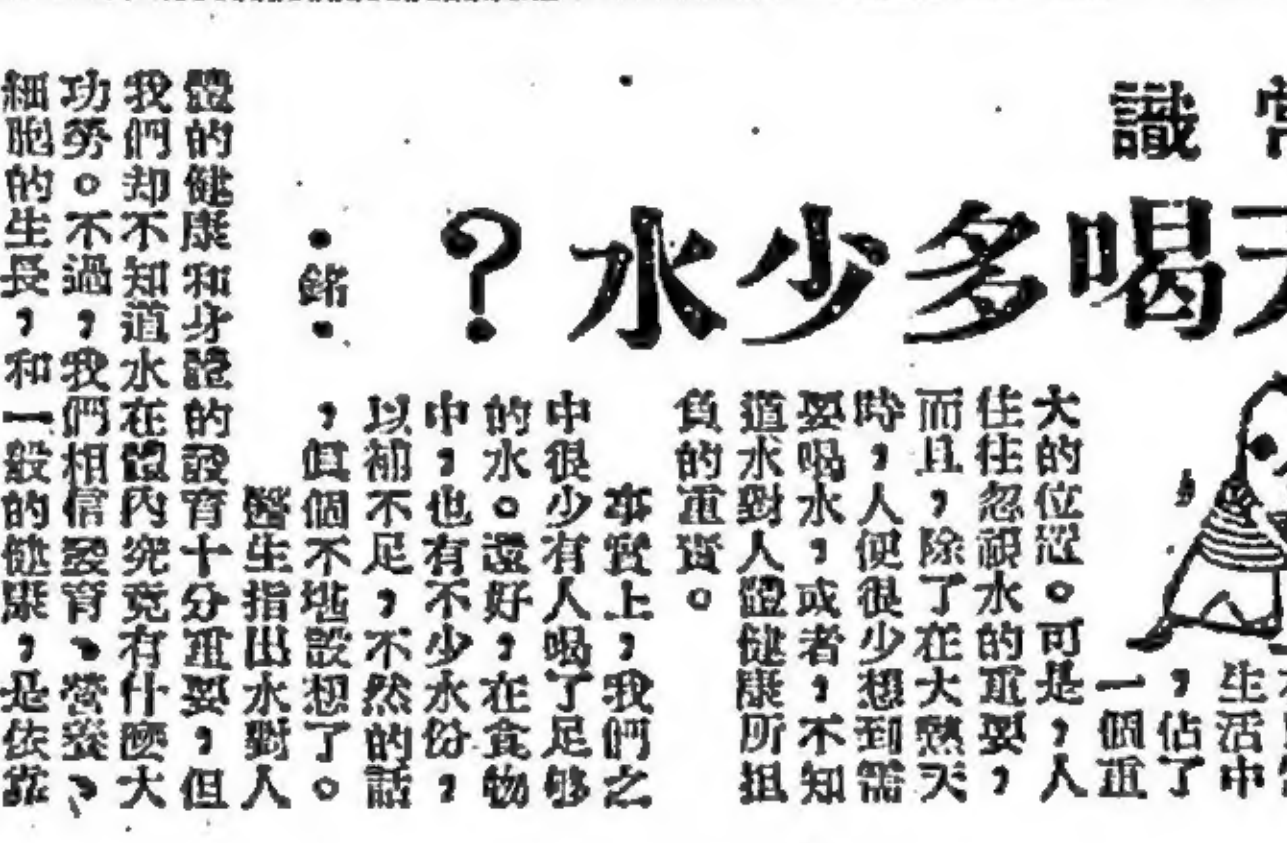 常識
天喝多少水？
·銘·
生活中
，佔了
一個重
大的位置。可是，人
往往忽視水的重要，
而且，除了在大熱天
時，人便很少想到需
要喝水，或者，不知
道水對人體健康所担
負的重責。
事實上，我們之
中很少有人喝了足够
的水。還好，在食物
中，也有不少水份，
以補不足，不然的話
，個不堪設想了。
醫生指出水對人
體的健康和身體的發育十分重要，但
我們却不知道水在體內究竟有什麼大
功勞。不過，我們相信發育、營養、
細胞的生長，和一般的健康，是依靠